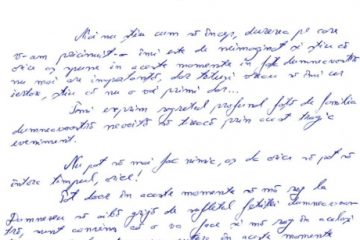 Nu mai știu cum să încep, durerea pe care
v-am pricinuit-o îmi este de neimaginat și știu că
orice aș spune în aceste momente în fața dumneavoastră
nu mai are importanță, dar totuși vreau să îmi cer
iertare, știu că nu o voi primi dar...
Îmi exprim regretul profund față de familia
dumneavoastră nevoită să treacă prin acest tragic
eveniment.
Nu pot să mai fac nimic, aș da orice să pot să
întorc timpul, orice!
Pot doar în aceste momente să mă rog la
Dumnezeu să aibă grijă de sufletul fetiței dumneavoas-
tră, sunt convins că o va face și mă rog în același
în aceste momente